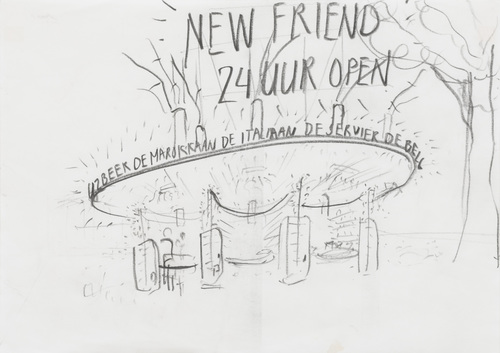 NEW FRIEND
24 UUR OPEN
UZBEEK DE MAROKKAAN DE ITALIAAN DE SERVIER DE BELG